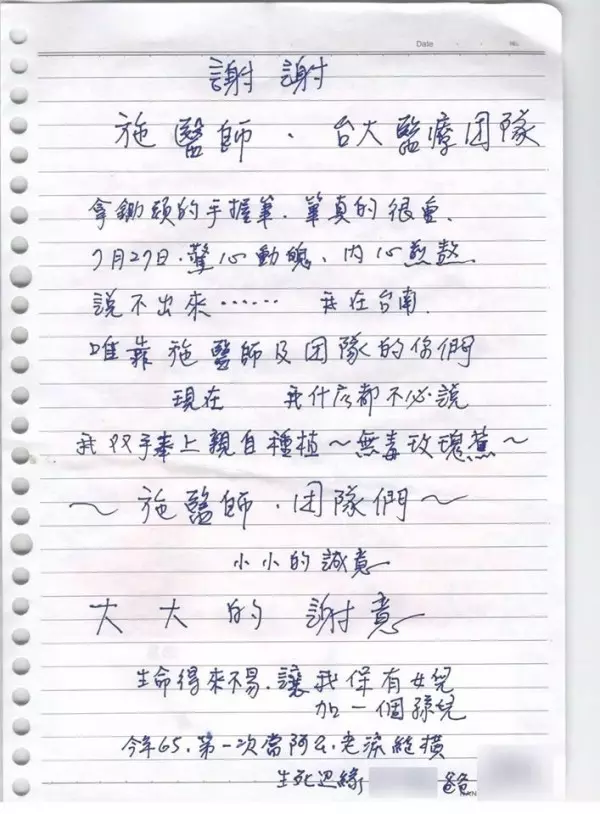 Date . . No.
謝謝
施醫師．台大醫療团隊
拿鋤頭的手握筆．筆真的很重．
7月27日．驚心動魄、內心煎熬．
說不出來…… 我在台南．
唯靠施醫師及团隊的你們
現在 我什么都不必說
我双手奉上親自種植～無毒玫瑰蕉～
～施醫師．团隊們～
小小的誠意
大大的謝意
生命得來不易．讓我保有女兒
加一個孫兒
今年65．第一次當阿公．老淚縱橫
生死边緣
爸爸